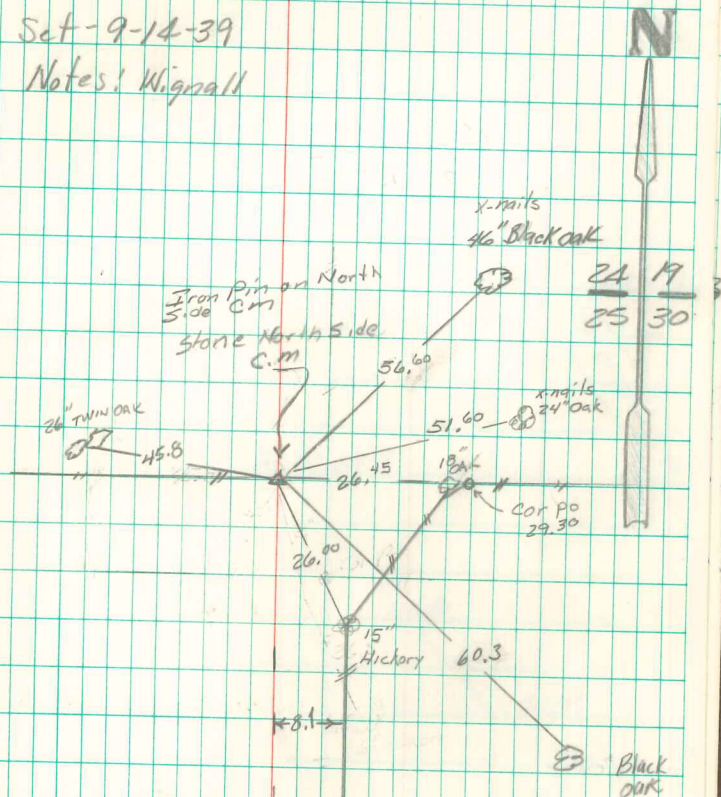 Set-9-14-39
Notes: Wignall
N
x-nails
46" Black oak
24 19
25 30
Iron Pin on North
Side CM
Stone North Side
C.M
56.60
x-nails
24" Oak
51.60
26" TWIN OAK
45.8
26.45
18"
OAK
Cor Po
29.30
26.00
15"
Hickory
60.3
8.1
Black
oak